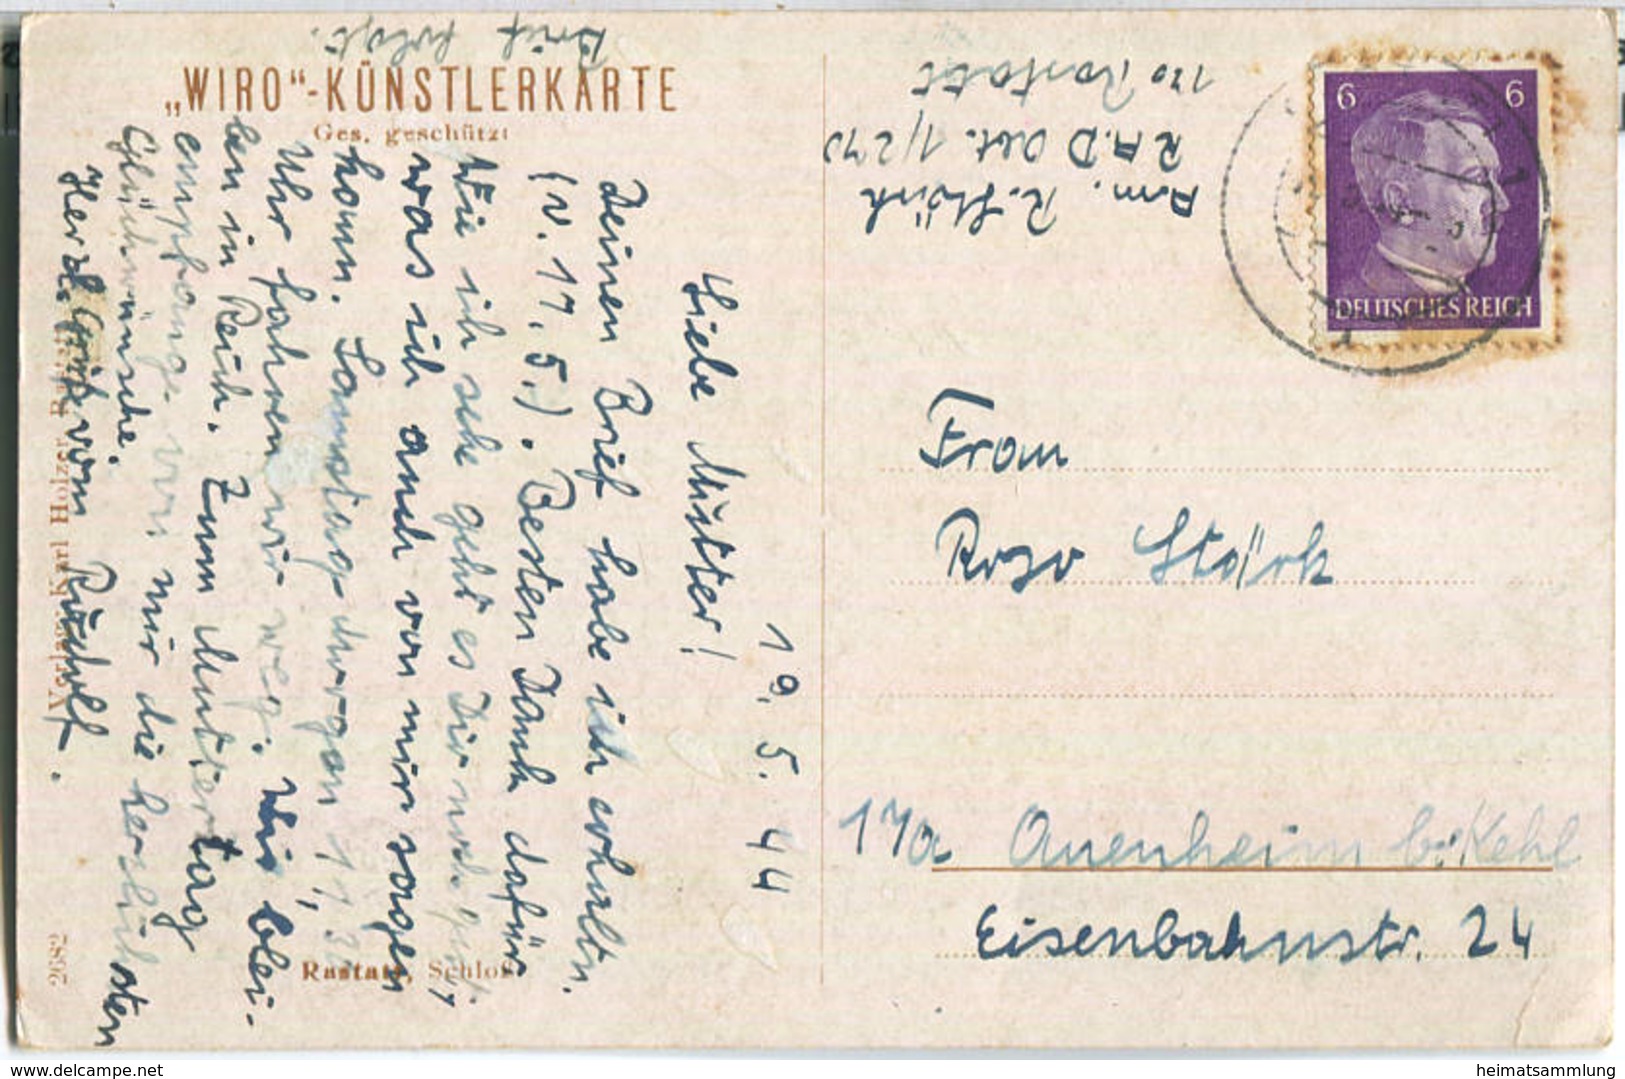 „WIRO"-KÜNSTLERKARTE
Ges. geschützt
19.5.44
Liebe Mutter!
Deinen Brief habe ich erhalten.
(v. 17.5.). Besten Dank dafür
Wie ich sehe geht es Dir noch gut,
was ich auch von mir sagen
kann. Samstag-morgen 11,30
Uhr fahren wir weg. Wir blei-
ben in Reich. Zum Muttertag
empfange von mir die herzlichsten
Glückwünsche.
Herzl. Grüße vom Rudolf.
Brief folgt.
Verlag Karl Holzer, Rastatt
2682
Rastatt, Schloß
Am. R. Stärk
R A D Abt. 1/270
170 Rastatt
6 6
DEUTSCHES REICH
Frau
Rosa Stärk
17a Auenheim b. Kehl
Eisenbahnstr. 24
heimatsammlung
www.delcampe.net